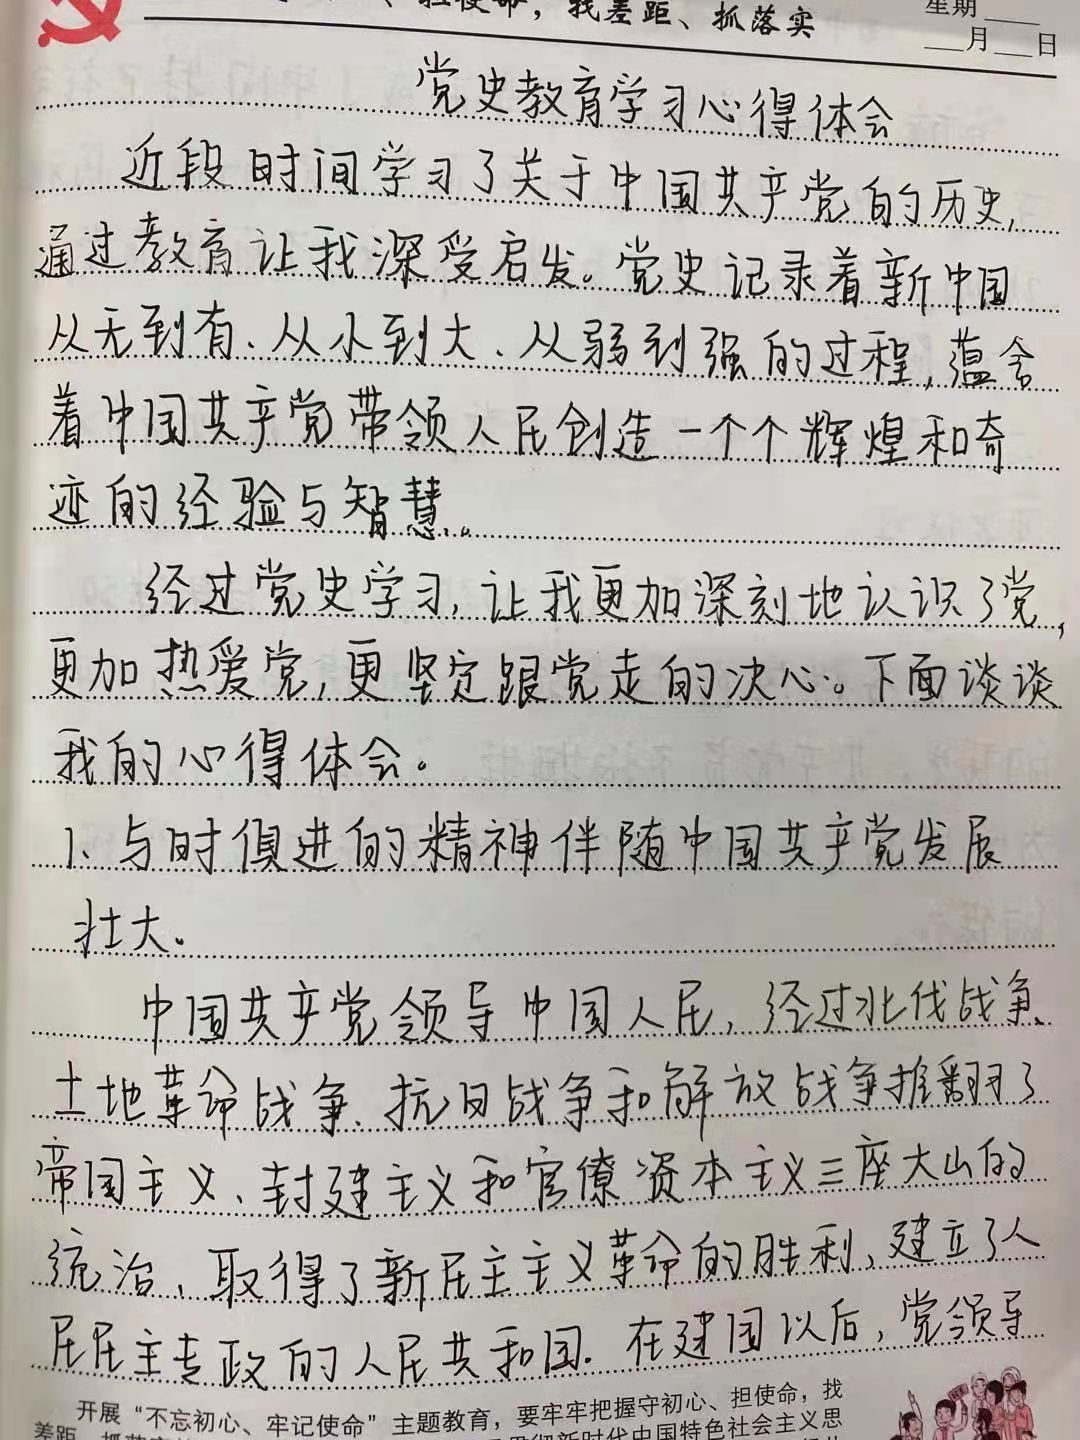 担使命，找差距、抓落实
星期
月 日
党史教育学习心得体会
近段时间学习了关于中国共产党的历史，
通过教育让我深受启发。党史记录着新中国
从无到有、从小到大、从弱到强的过程，蕴含
着中国共产党带领人民创造一个个辉煌和奇
迹的经验与智慧。
经过党史学习，让我更加深刻地认识了党，
更加热爱党，更坚定跟党走的决心。下面谈谈
我的心得体会。
1、与时俱进的精神伴随中国共产党发展
壮大。
中国共产党领导中国人民，经过北伐战争、
土地革命战争、抗日战争和解放战争推翻了
帝国主义、封建主义和官僚资本主义三座大山的
统治，取得了新民主主义革命的胜利，建立了人
民民主专政的人民共和国．在建国以后，党领导
开展“不忘初心、牢记使命”主题教育，要牢牢把握守初心、担使命，找